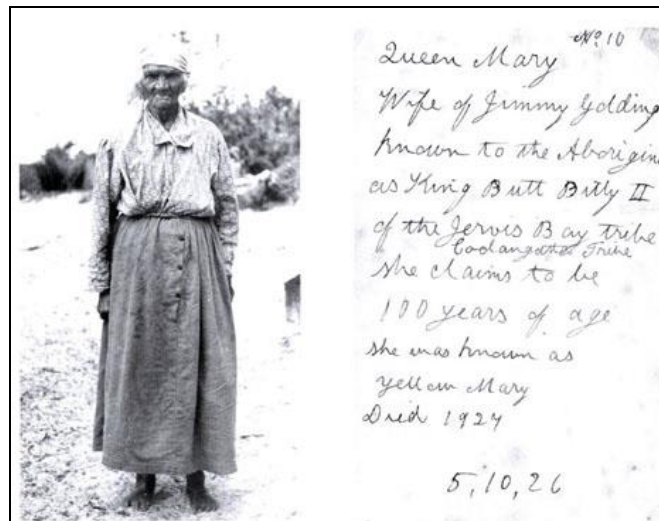 No 10
Queen Mary
Wife of Jimmy Golding
known to the Aborigine
as King Butt Billy II
of the Jervis Bay tribe
Coolangatta Tribe
she claims to be
100 years of age
she was known as
yellow Mary
Died 1927
5,10,26